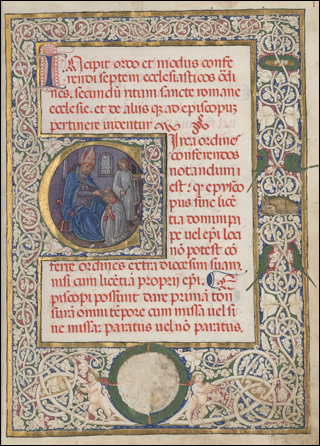 Incipit ordo et modus confe
rendi septem ecclesiasticos ōdi
nes, secundū ritum sancte romane
ecclesie. et de aliis q̄ ad episcopuz
pertinere videntur
Circa ordines
conferendos
notandum
est: qp episco
pus sine licē
tia domini pa
pe vel epi loci
nō potest cō
ferre ordines extra diocesim suam.
nisi cum licētia proprii epi. E
piscopi possunt dare primā ton
surā omni tempore cum missa vel si
ne missa: paratus vel nō paratus.